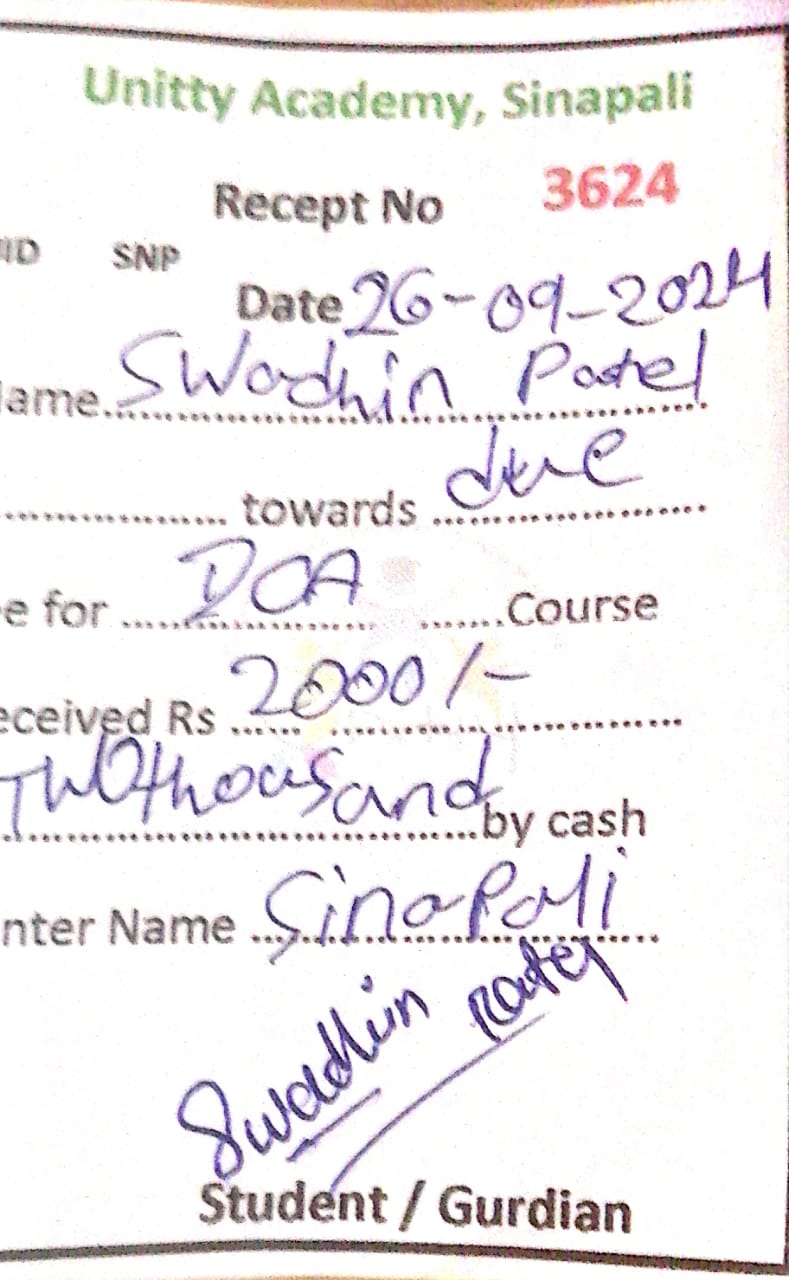 Unitty Academy, Sinapali
Recept No 3624
ID SNP
Date 26-09-2024
ame Swadhin Patel
towards due
e for DCA Course
eceived Rs 2000/-
Twothousand by cash
nter Name Sinapali
Swadhin Patel
Student / Gurdian